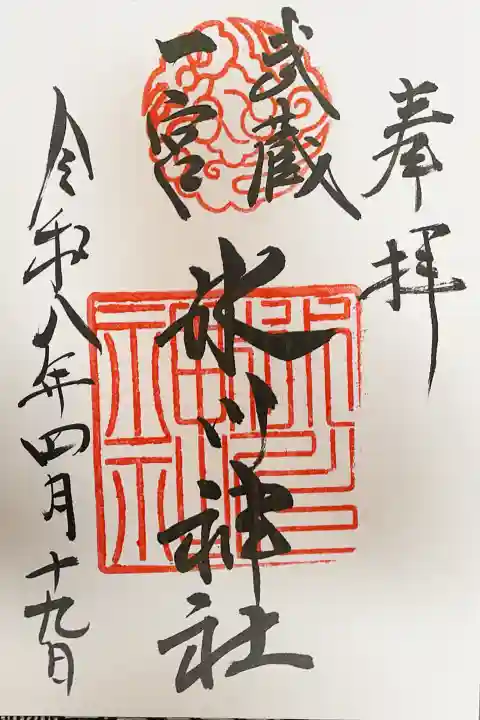 奉拝
武蔵
一宮
氷川神社
令和八年四月十九日
氷川
神社